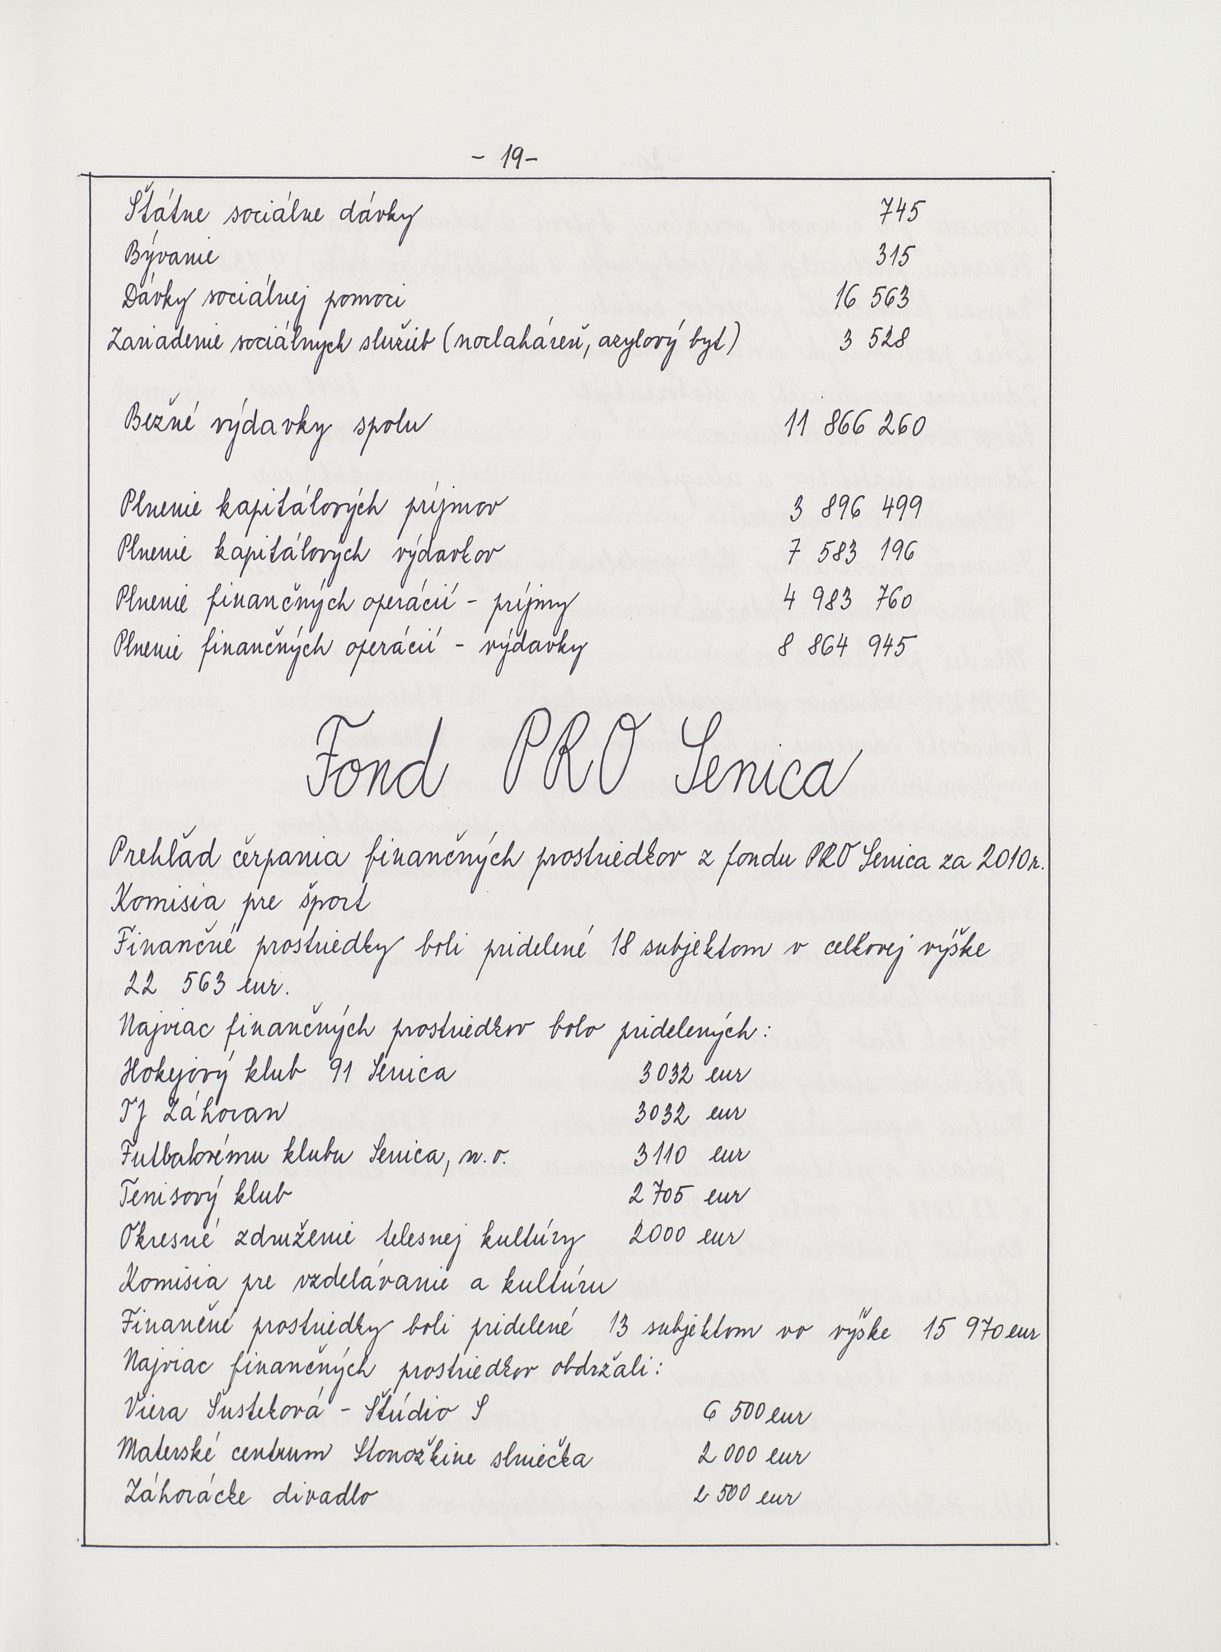 - 19 -
Štátne sociálne dávky 745
Bývanie 315
Dávky sociálnej pomoci 16 563
Zariadenie sociálnych služieb (nocľaháreň, azylový byt) 3 528
Bežné výdavky spolu 11 866 260
Plnenie kapitálových príjmov 3 896 499
Plnenie kapitálových výdavkov 7 583 196
Plnenie finančných operácií - príjmy 4 983 760
Plnenie finančných operácií - výdavky 8 864 945
Fond PRO Senica
Prehľad čerpania finančných prostriedkov z fondu PRO Senica za 2010 r.
Komisia pre šport
Finančné prostriedky boli pridelené 18 subjektom v celkovej výške
22 563 eur.
Najviac finančných prostriedkov bolo pridelených:
Hokejový klub 91 Senica 3032 eur
TJ Záhoran 3032 eur
Futbalovému klubu Senica, n.o. 3110 eur
Tenisový klub 2 705 eur
Okresné združenie telesnej kultúry 2000 eur
Komisia pre vzdelávanie a kultúru
Finančné prostriedky boli pridelené 13 subjektom vo výške 15 970 eur
Najviac finančných prostriedkov obdržali:
Viera Šusteková - Štúdio S 6 500 eur
Materské centrum Stonožkine slniečka 2 000 eur
Záhorácke divadlo 500 eur